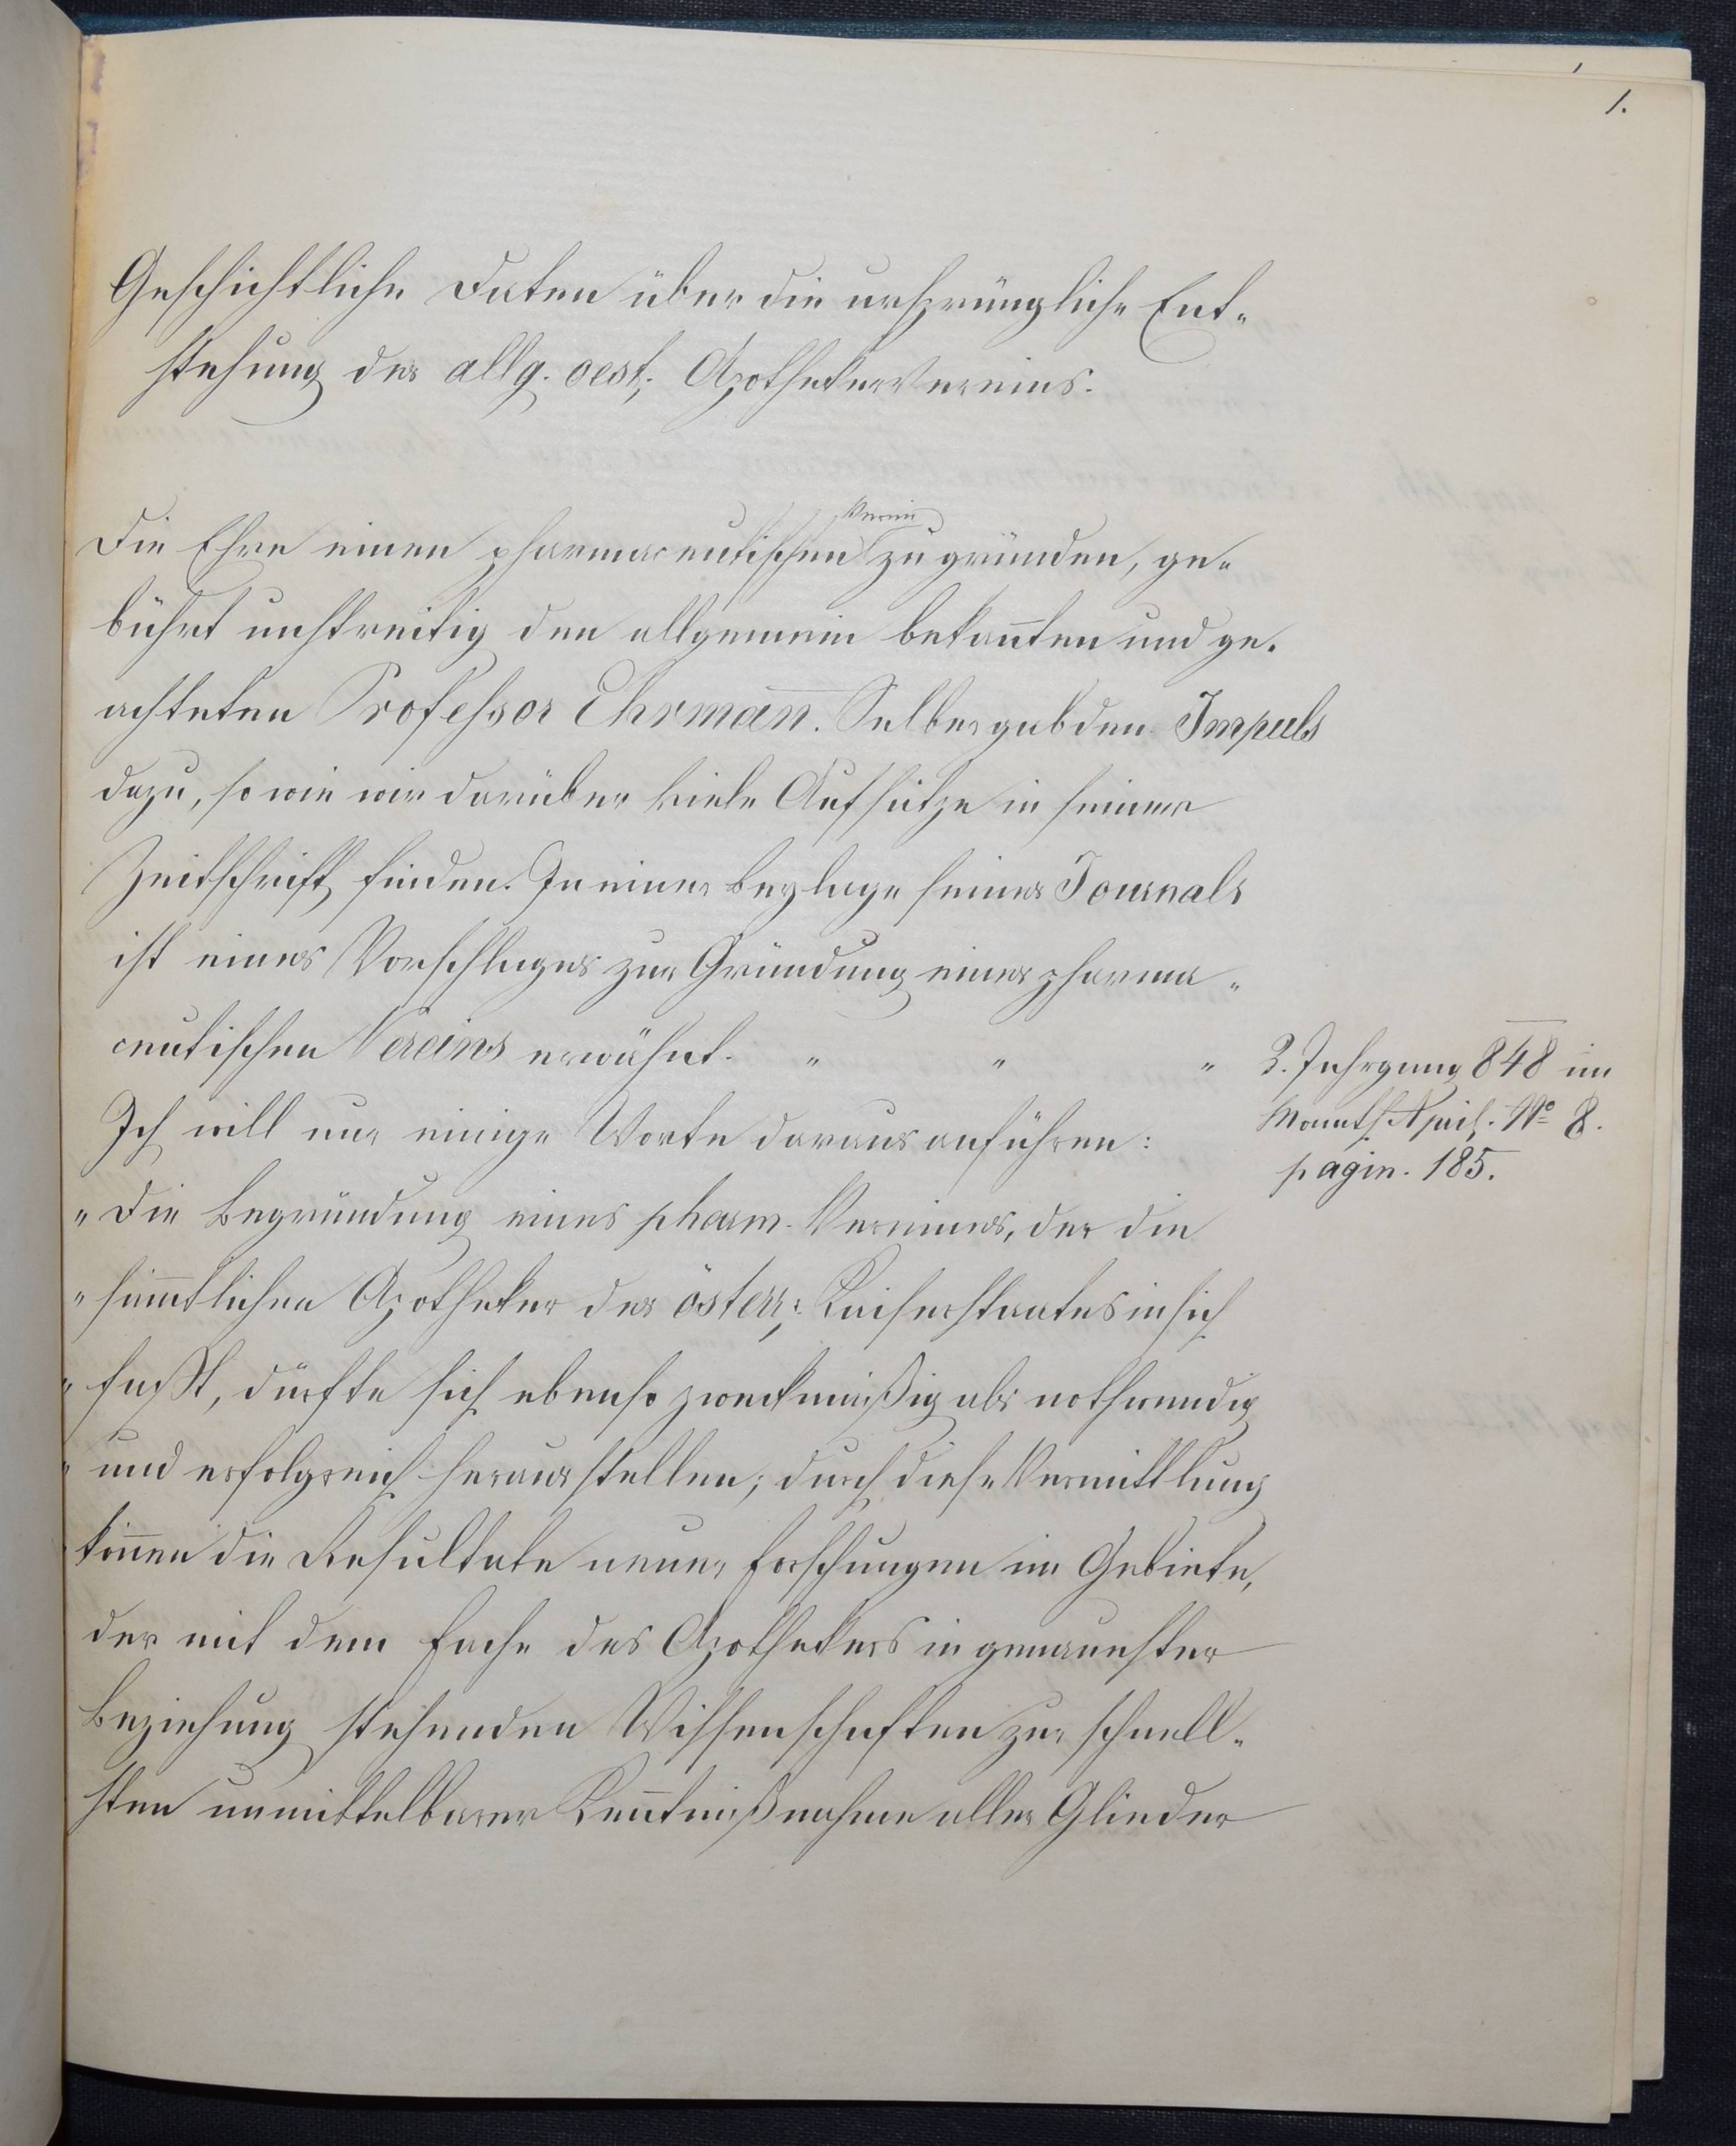 1.
Geschichtliche Daten über die ursprüngliche Ent-
stehung des allg. oest; Apothekervereins.
Verein
Die Ehre einen pharmaceutischen zu gründen, ge-
bührt unstreitig den allgemein bekan̄ten und ge-
achteten Professor Ehrman̄. Selber gab den Impuls
dazu, so wie wir darüber viele Aufsätze in seiner
Zeitschrift finden. In einer Beylage seines Journals
ist eines Vorschlages zur Gründung eines pharma-
ceutischen Vereins erwähnt. " " "
3. Jahrgang 848 im
Monath April. No 8.
pagin. 185.
Ich will nur einige Worte daraus anführen:
"Die Begründung eines pharm. Vereines, der die
"sam̄tlichen Apotheker des österr: Kaiserstaates in sich
"faßt, dürfte sich ebenso zweckmäßig als nothwendig
"und erfolgreich herausstellen; durch diese Vermittlung
kön̄en die Resultate neuer Forschungen im Gebiete,
der mit dem Fache des Apothekers in genauester
Beziehung stehenden Wissenschaften zur schnell-
sten unmittelbarer Ken̄tnißnahme aller Glieder